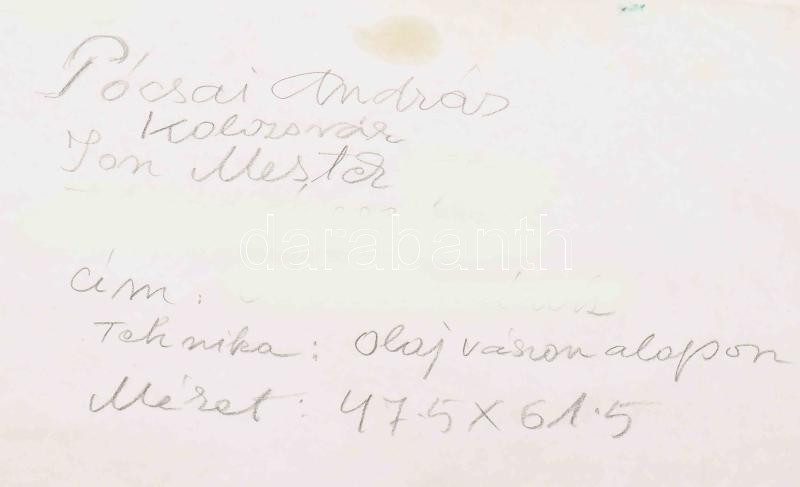 Pócsai András
Kolozsvár
Ion Meșter
darabanth
Cím:
Tehnika: olaj vászon alapon
Méret: 47.5 X 61.5